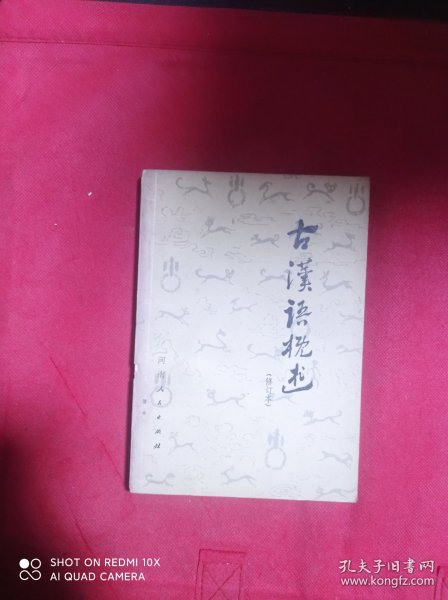 古漢语概述
(修订本)
河南人民出版社
SHOT ON REDMI 10X
AI QUAD CAMERA
孔夫子旧书网
www.kongfz.com